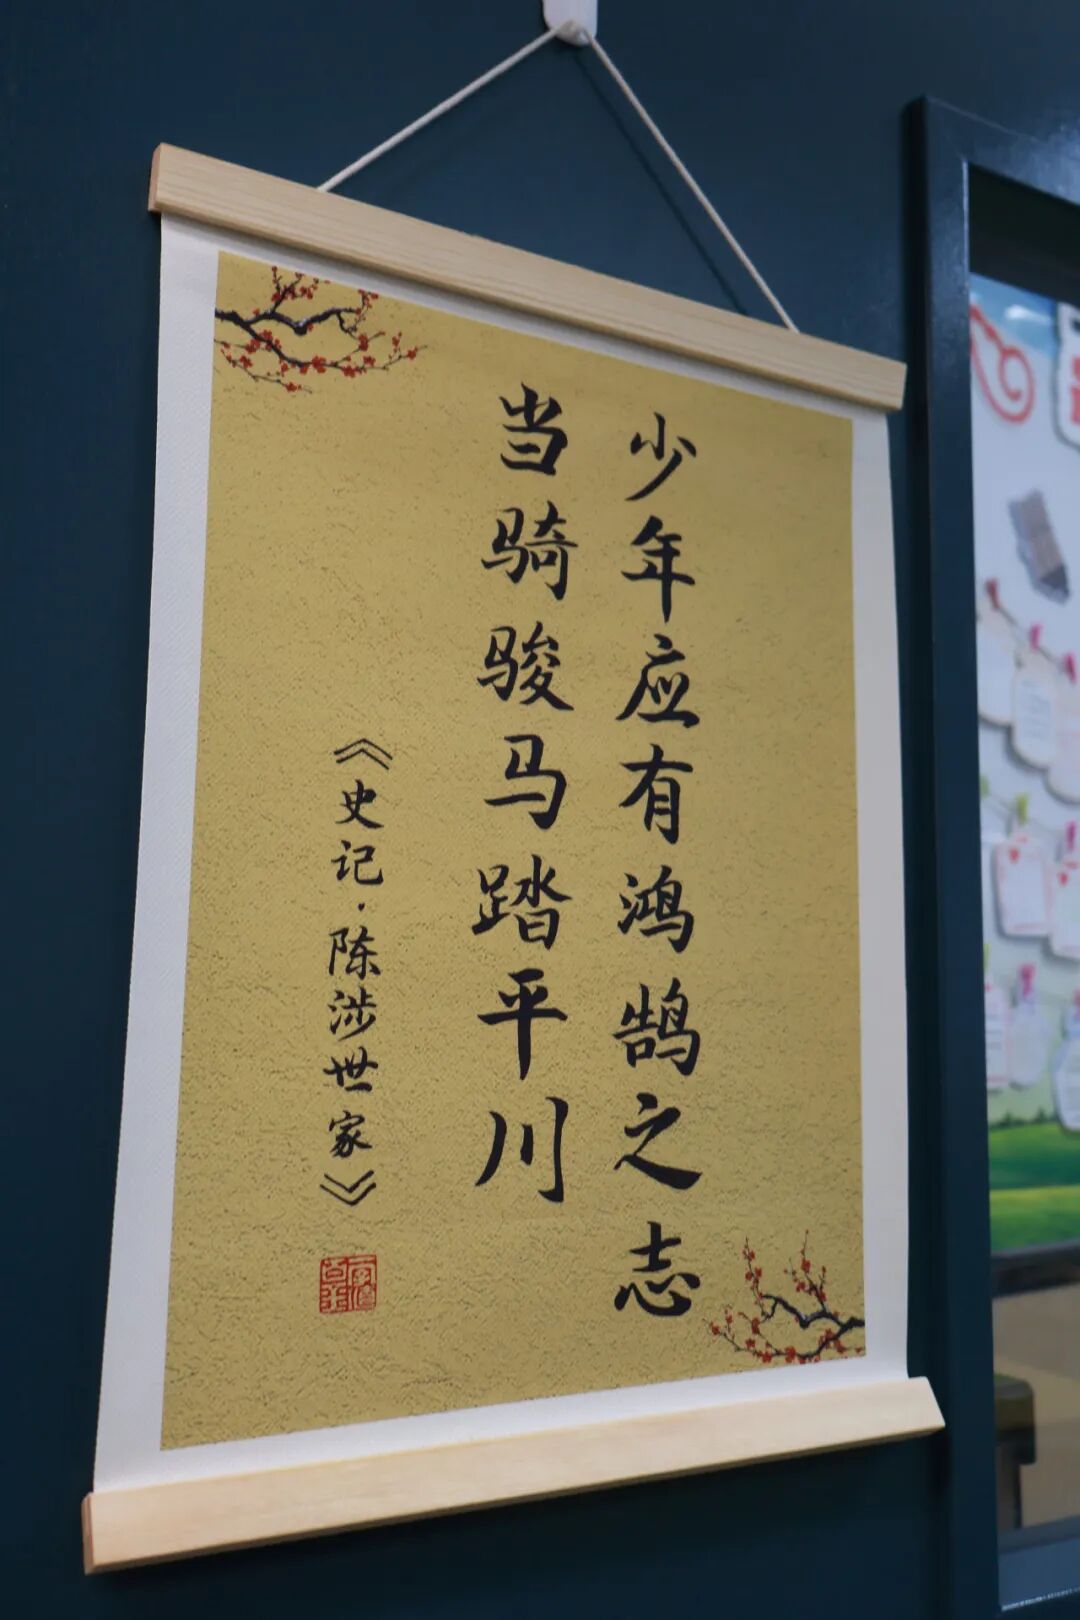 少年应有鸿鹄之志
当骑骏马踏平川
《史记·陈涉世家》